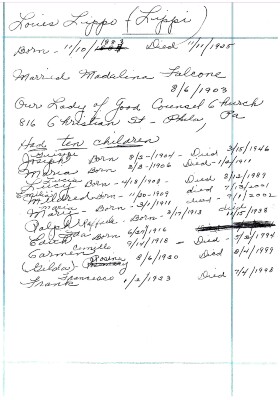 Louis Lippo (Lippi)
Born - 11/10/1883 Died 1/11/1935
Married Madalina Falcone
8/6/1903
Our Lady of Good Counsel Church
816 Christian St - Phila, Pa
Had ten children
Joseph Born 2/2-1904 - Died 3/15/1946
Maria Born 2/8-1906 Died -1/2/1911
Lucia
Lucy - Born - 4/18/1908 - Died 8/12/1989
Mildred Born - 11/20-1909 died 7/13/2001
Maria
Marie - Born - 3/1/1911 died - 7/11/2002
Ralph (Raffaele - Born - 2/17/1913 died 10/15/1938
Ida Born 6/27/1916
Edith
Carmello
Carmen 7/14/1918 - Died - 7/2/1994
(Gilda) 8/6/1920 Died 8/4/1999
Francesco
Frank 1/2/1923 Died 7/4/1998